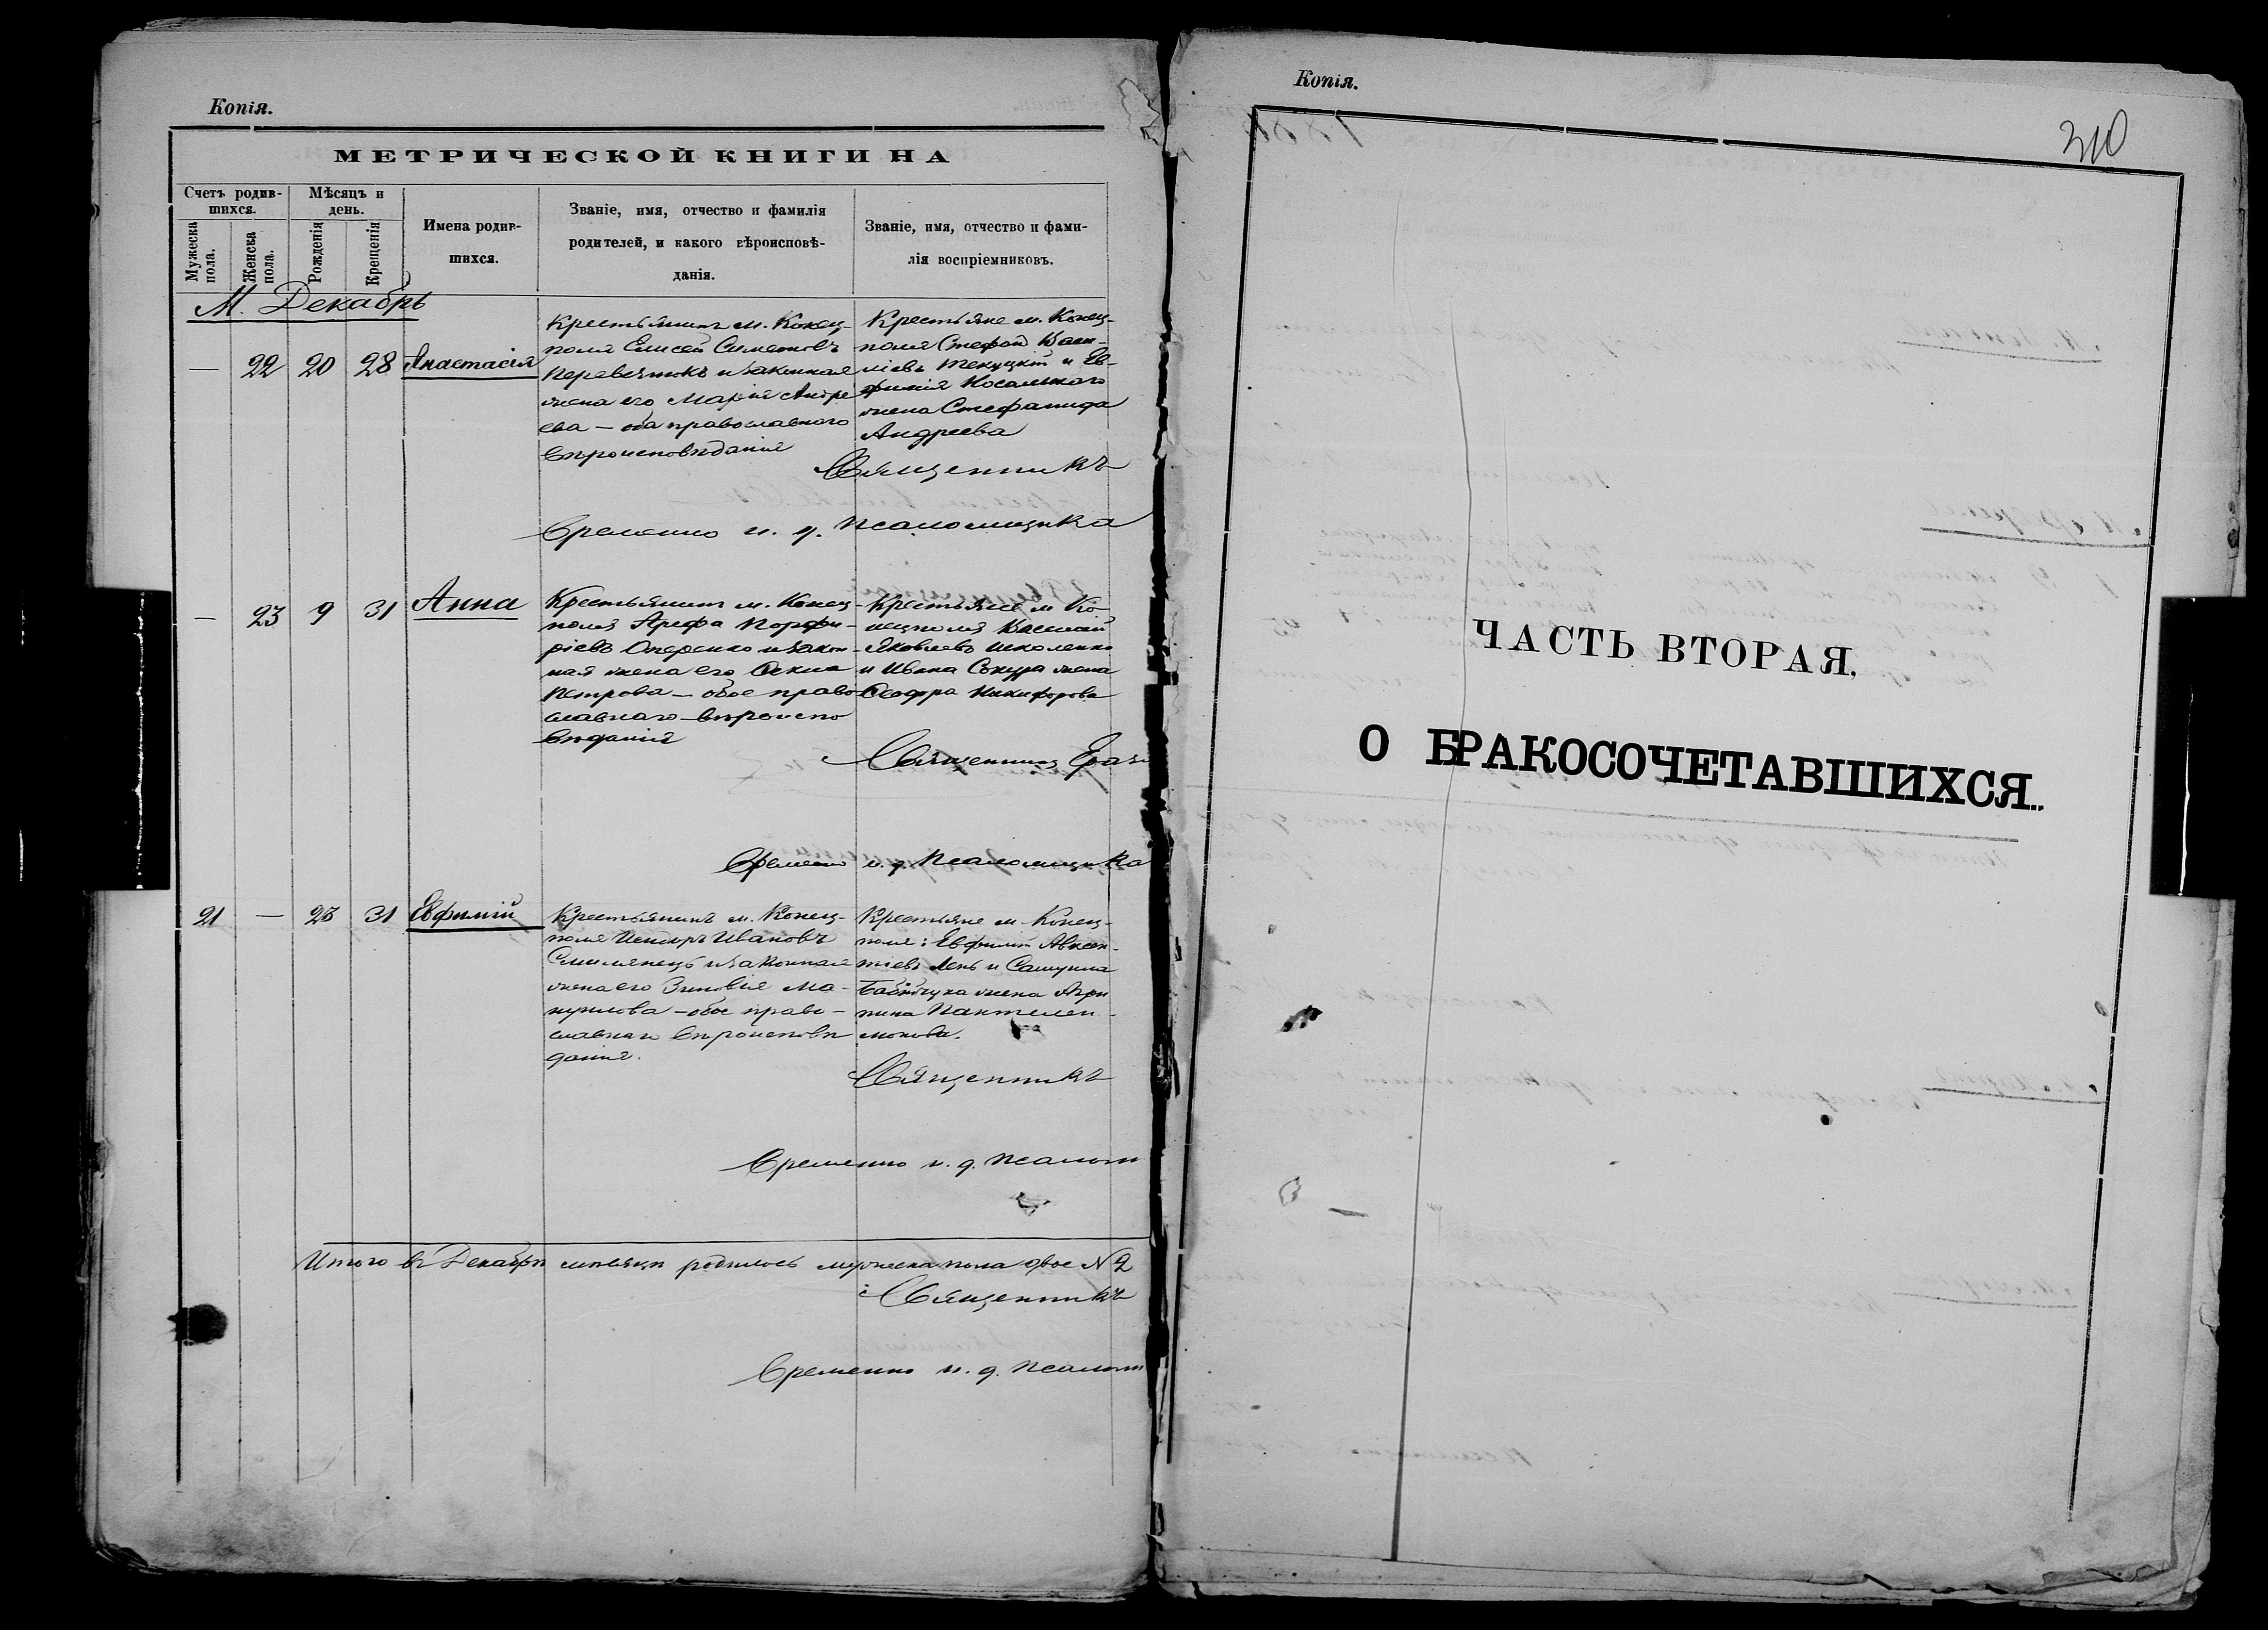 Копія.
МЕТРИЧЕСКОЙ КНИГИ НА
Счетъ родив-
шихся.
Мужеска
пола.
Женска
пола.
Мѣсяцъ и
день.
Рожденія
Крещенія
Имена родив-
шихся.
Званіе, имя, отчество и фамилія
родителей, и какого вѣроисповѣ-
данія.
Званіе, имя, отчество и фами-
лія воспріемниковъ.
М. Декабрь
— 22 20 28 Анастасія
Крестьянинъ м. Конец-
поля Елисей Симеоновъ
и законная
жена его Марія Андре
ева — оба православнаго
вѣроисповѣданія
Крестьяне м. Конец-
поля Стефан
и Ев-
фимія
жена Стефанида
Андреева
Священникъ
Временно и. д. Псаломщика
— 23 9 31 Анна
Крестьянинъ м. Конец-
поля Арефа Порфи-
ріевъ Оперенко и закон-
ная жена его
Петрова — обое право
славнаго вѣроиспо
вѣданія
Крестьяне м Ко-
нецполя Василій
Яковлевъ
и Ивана Сокура жена
Ѳеодора Никифорова
Священникъ
Временно и. д. Псаломщика
21 — 23 31 Евфимій
Крестьянинъ м. Конец-
поля Ивановъ
Смилянецъ и законная
жена его Зиновія Ма-
нуилова — обое право-
славнаго вѣроисповѣ
данія.
Крестьяне м. Конец-
поля: Евфимій Авксен-
тіевъ Лень и
жена Агри
пина Пантелеи-
монова.
Священникъ
Временно и. д. Псалом
Итого въ Декабрѣ мѣсяцѣ родилось мужеска пола двое № 2
Священникъ
Временно и. д. Псалом
Копія.
310
ЧАСТЬ ВТОРАЯ.
О БРАКОСОЧЕТАВШИХСЯ.